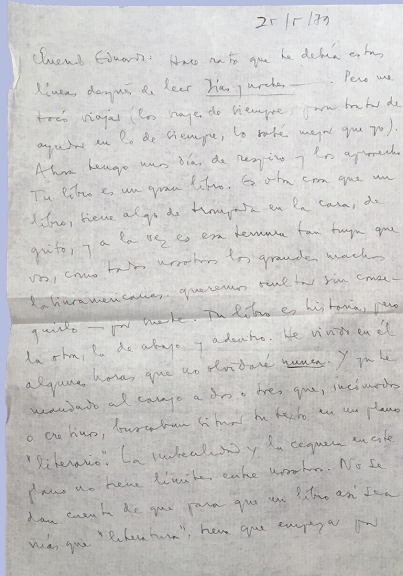 25/5/79
Querido Eduardo: Hace rato que te debía estas
líneas después de leer Días y noches —. Pero me
tocó viajar (los viajes de siempre, para tratar de
ayudar en lo de siempre, lo sabés mejor que yo).
Ahora tengo unos días de respiro y los aprovecho.
Tu libro es un gran libro. Es otra cosa que un
libro, tiene algo de trompada en la cara, de
grito, y a la vez es esa ternura tan tuya que
vos, como todos nosotros los grandes machos
latinoamericanos queremos ocultar sin conse-
guirlo — por suerte. Tu libro es historia, pero
la otra, la de abajo y adentro. He vivido en él
algunas horas que no olvidaré nunca. Y ya he
mandado al carajo a dos o tres que, incómodos
o cretinos, buscaban situar tu texto en un plano
"literario". La imbecilidad y la ceguera en este
plano no tiene límites entre nosotros. No se
dan cuenta de que para que un libro así sea
más que "literatura", tiene que empezar por